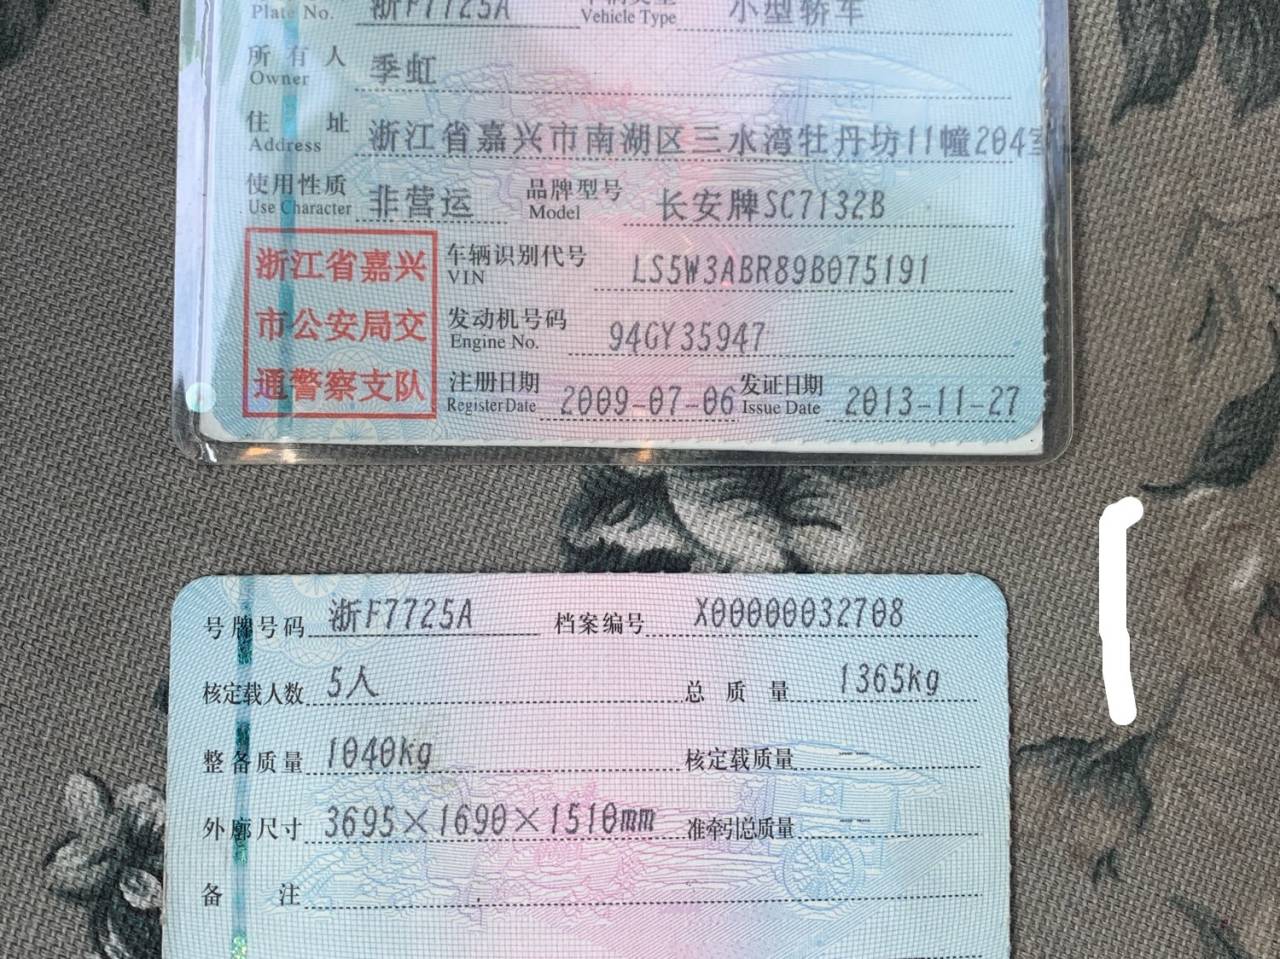 Plate No. 浙F7725A Vehicle Type 小型轿车
所有人 季虹
Owner
住址 浙江省嘉兴市南湖区三水湾牡丹坊11幢204室
Address
使用性质 非营运 品牌型号 长安牌SC7132B
Use Character Model
浙江省嘉兴
市公安局交
通警察支队
车辆识别代号 LS5W3ABR89B075191
VIN
发动机号码 94GY35947
Engine No.
注册日期 2009-07-06 发证日期 2013-11-27
Register Date Issue Date
号牌号码 浙F7725A 档案编号 X00000032708
核定载人数 5人 总质量 1365kg
整备质量 1040kg 核定载质量 --
外廓尺寸 3695×1690×1510mm 准牵引总质量 --
备注